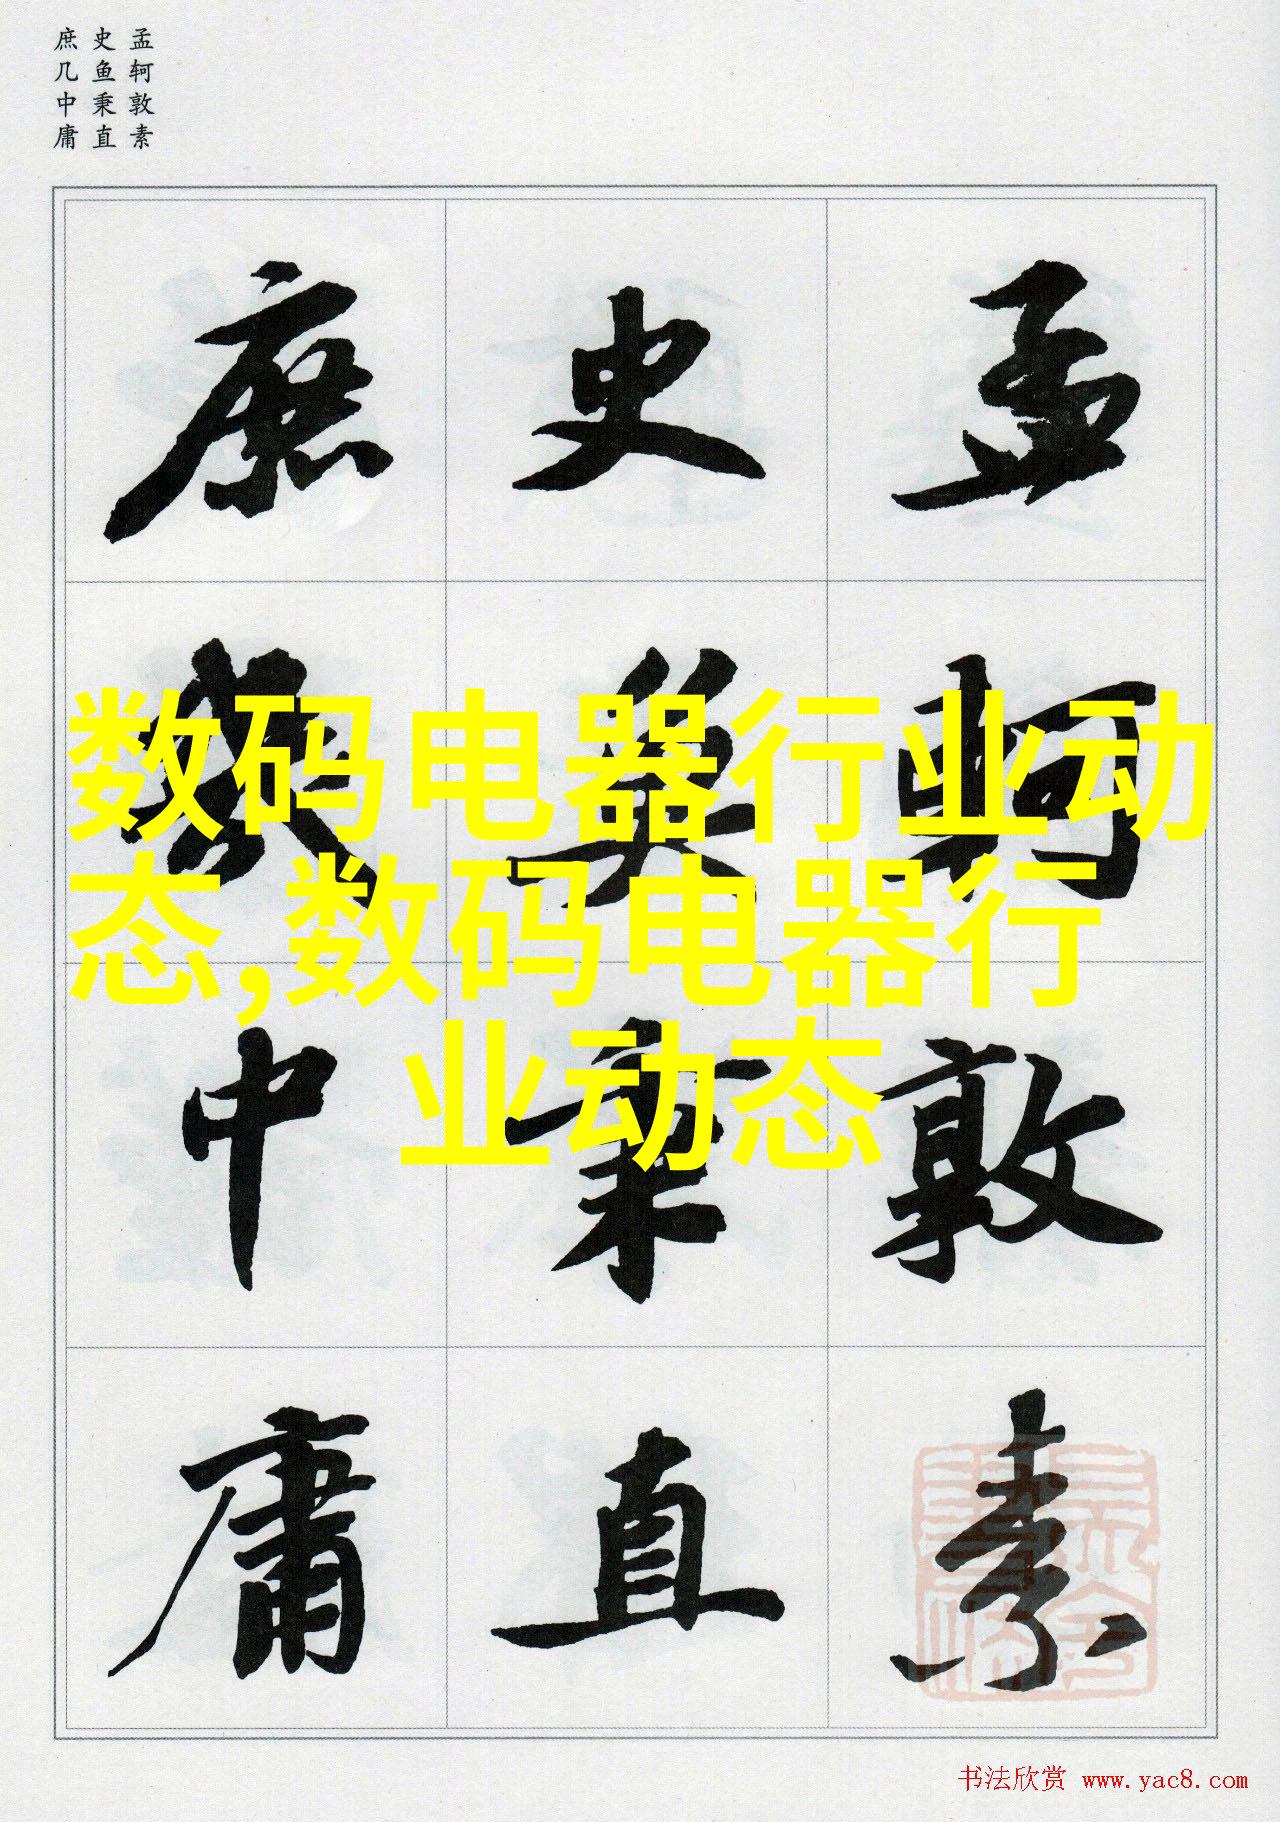 孟轲敦素
史鱼秉直
庶几中庸
孟軻敦素
史魚秉直
庶幾中庸
数码电器行业动
态,数码电器行
业动态
书法欣赏 www.yac8.com